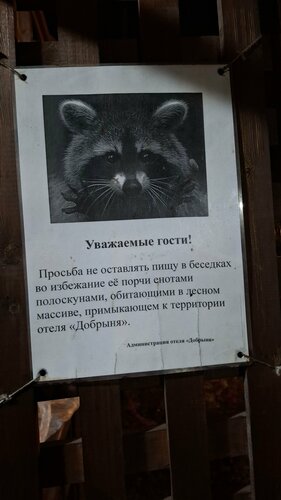 Уважаемые гости!
Просьба не оставлять пищу в беседках
во избежание её порчи енотами
полоскунами, обитающими в лесном
массиве, примыкающем к территории
отеля «Добрыня».
Администрация отеля «Добрыня»